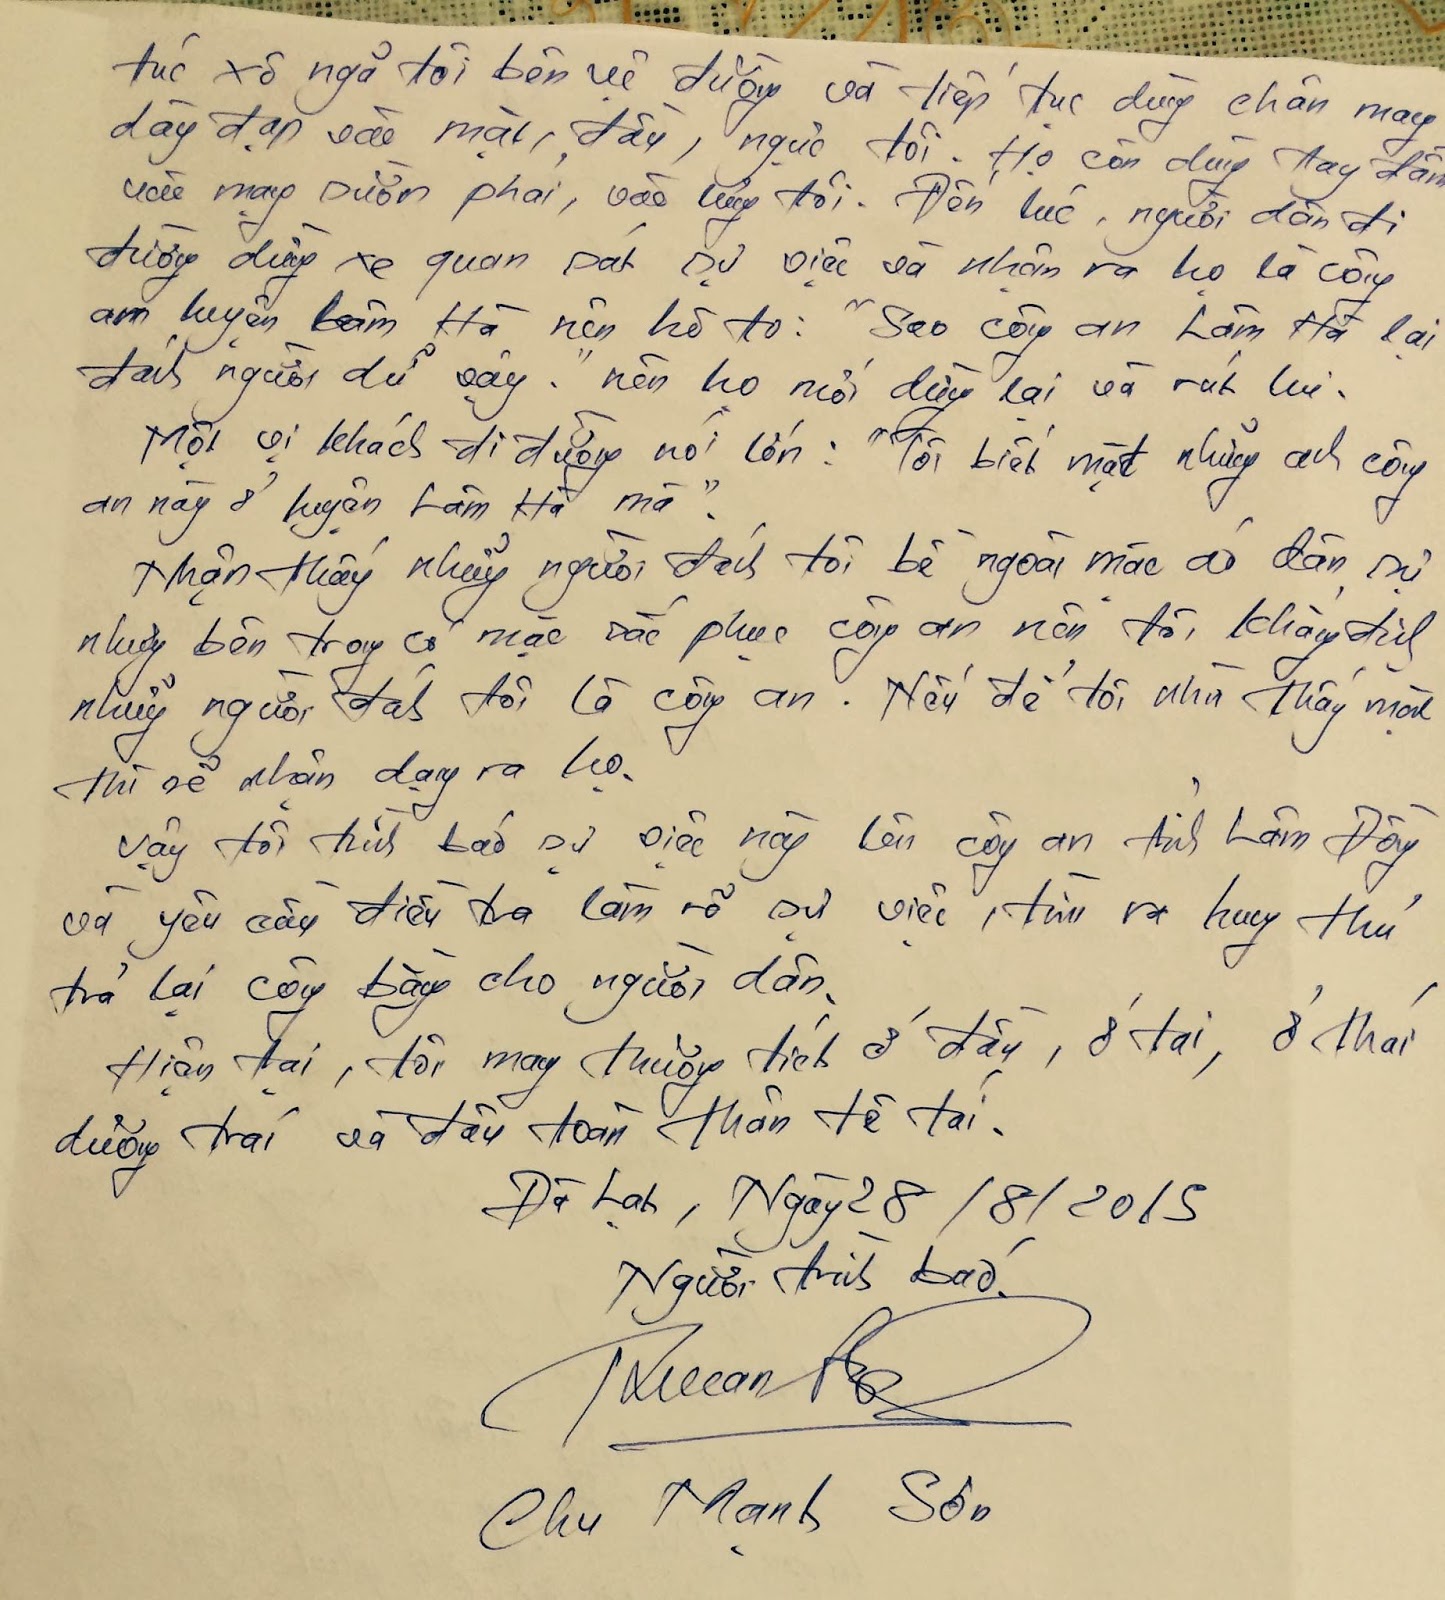 tục xô ngã tôi bên vệ đường và tiếp tục dùng chân mang
dày đạp vào mặt, đầu, ngực tôi. Họ còn dùng tay đấm
vào mạng sườn phải, vào lưng tôi. Đến lúc, người dân đi
đường dừng xe quan sát sự việc và nhận ra họ là công
an huyện Lâm Hà nên hô to: "Sao công an Lâm Hà lại
đánh người dữ vậy." nên họ mới dừng lại và rút lui.
Một vị khách đi đường nói lớn: "Tôi biết mặt những anh công
an này ở huyện Lâm Hà mà".
Nhận thấy những người đánh tôi bề ngoài mặc áo dân sự
nhưng bên trong có mặc sắc phục công an nên tôi khẳng định
những người đánh tôi là công an. Nếu để tôi nhìn thấy mặt
thì sẽ nhận dạng ra họ.
Vậy tôi trình báo sự việc này lên công an tỉnh Lâm Đồng
và yêu cầu điều tra làm rõ sự việc, tìm ra hung thủ
trả lại công bằng cho người dân.
Hiện tại, tôi mang thương tích ở đầu, ở tai, ở thái
dương trái và đau toàn thân tê tái.
Đà Lạt, Ngày 28/8/2015
Người trình báo.
Chu Mạnh Sơn